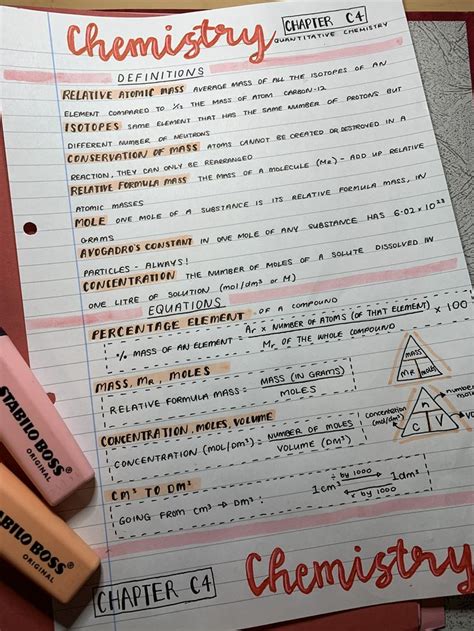 Chemistry
CHAPTER C4
QUANTITATIVE CHEMISTRY
DEFINITIONS
RELATIVE ATOMIC MASS AVERAGE MASS OF ALL THE ISOTOPES OF AN
ELEMENT COMPARED TO 1/12 THE MASS OF ATOM CARBON-12
ISOTOPES SAME ELEMENT THAT HAS THE SAME NUMBER OF PROTONS BUT
DIFFERENT NUMBER OF NEUTRONS
CONSERVATION OF MASS ATOMS CANNOT BE CREATED OR DESTROYED IN A
REACTION, THEY CAN ONLY BE REARRANGED
RELATIVE FORMULA MASS THE MASS OF A MOLECULE (Mr) - ADD UP RELATIVE
ATOMIC MASSES
MOLE ONE MOLE OF A SUBSTANCE IS ITS RELATIVE FORMULA MASS, IN
GRAMS
AVOGADRO'S CONSTANT IN ONE MOLE OF ANY SUBSTANCE HAS 6.02 x 10²³
PARTICLES - ALWAYS!
CONCENTRATION THE NUMBER OF MOLES OF A SOLUTE DISSOLVED IN
ONE LITRE OF SOLUTION (mol/dm³ or M)
EQUATIONS
PERCENTAGE ELEMENT OF A COMPOUND
% MASS OF AN ELEMENT = Ar x NUMBER OF ATOMS (OF THAT ELEMENT) x 100
Mr OF THE WHOLE COMPOUND
MASS, Mr, MOLES
RELATIVE FORMULA MASS = MASS (IN GRAMS)
MOLES
MASS
Mr moles
CONCENTRATION, MOLES, VOLUME
CONCENTRATION (MOL/DM³) = NUMBER OF MOLES
VOLUME (DM³)
number
concentration
(mol/dm³)
n
C V
CM³ TO DM³
GOING FROM CM³ → DM³ :
÷ by 1000
1cm³ 1dm³
x by 1000
STABILO BOSS
ORIGINAL
STABILO BOSS
ORIGINAL
CHAPTER C4
Chemistry